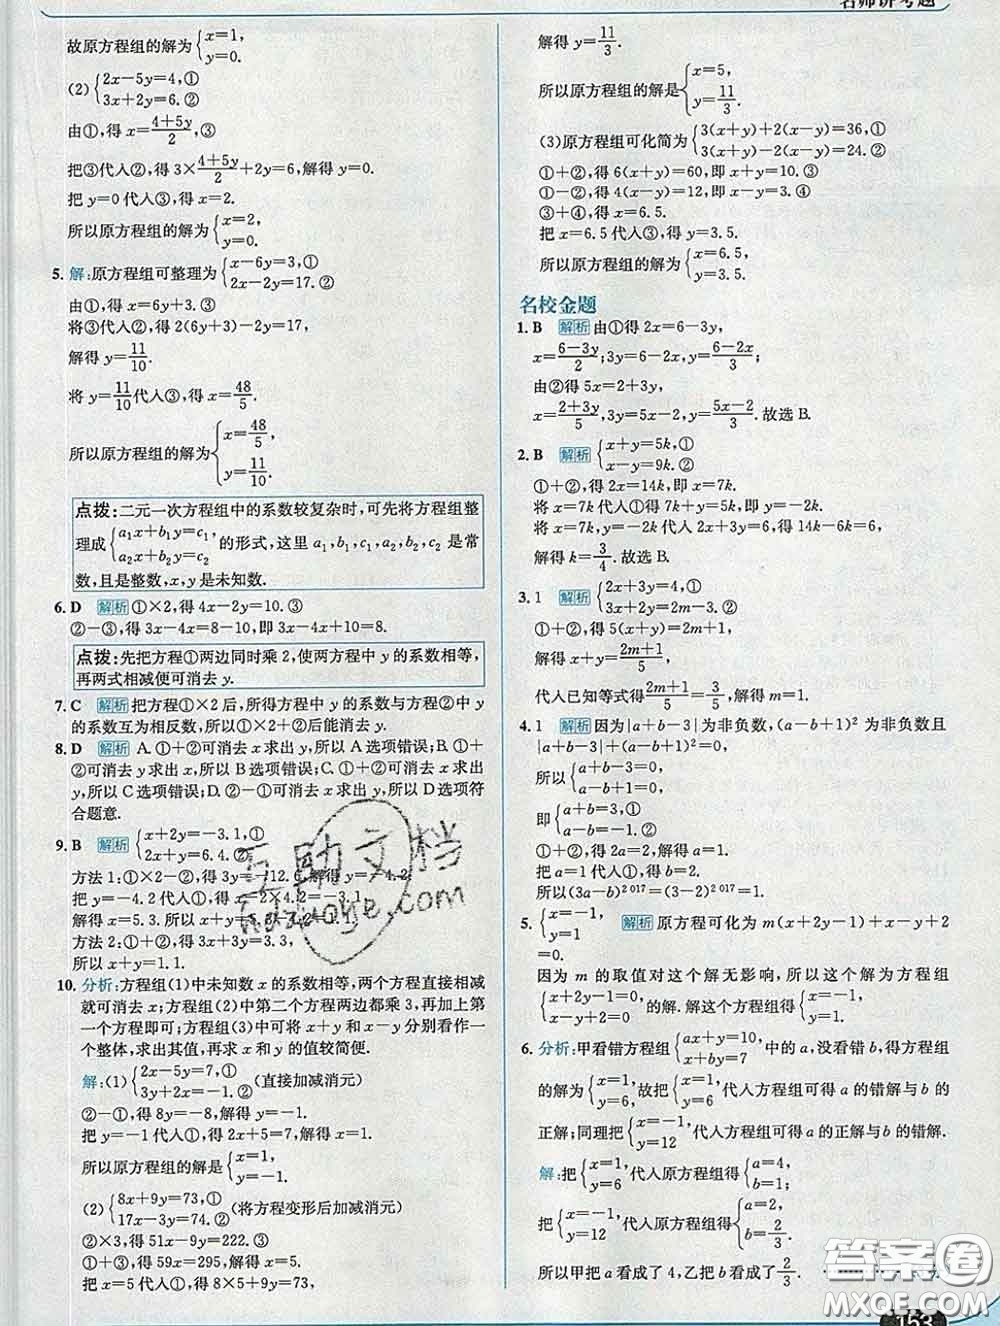 名师讲考题
故原方程组的解为{x=1, y=0.
(2){2x-5y=4,① 3x+2y=6.②
由①,得 x=(4+5y)/2,③
把③代入②,得 3×(4+5y)/2+2y=6,解得 y=0.
把 y=0代入③,得 x=2.
所以原方程组的解为{x=2, y=0.
5. 解:原方程组可整理为{x-6y=3,① 2x-2y=17.②
由①,得 x=6y+3.③
将③代入②,得 2(6y+3)-2y=17,
解得 y=11/10.
将 y=11/10代入③,得 x=48/5.
所以原方程组的解为{x=48/5, y=11/10.
点拨:二元一次方程组中的系数较复杂时,可先将方程组整
理成{a₁x+b₁y=c₁, a₂x+b₂y=c₂ 的形式,这里 a₁,b₁,c₁,a₂,b₂,c₂ 是常
数,且是整数,x,y 是未知数.
6. D 解析 ①×2,得 4x-2y=10.③
②-③,得 3x-4x=8-10,即 3x-4x+10=8.
点拨:先把方程①两边同时乘 2,使两方程中 y 的系数相等,
再两式相减便可消去 y.
7. C 解析 把方程①×2 后,所得方程中 y 的系数与方程②中 y
的系数互为相反数,所以①×2+②后能消去 y.
8. D 解析 A.①+②可消去 x 求出 y,所以 A 选项错误;B.①+
②可消去 y求出 x,所以 B 选项错误;C.①+②可消去 x 求出
y,所以 C 选项错误;D.②-①可消去 x求出 y,所以 D 选项符
合题意.
9. B 解析 {x+2y=-3.1,① 2x+y=6.4.②
方法 1:①×2-②,得 3y=-12.6,解得 y=-4.2.
把 y=-4.2 代入①,得 x+2×
解得 x=5.3.所以 x+y=
方法 2:①+②,得 3x+3y=3.3,
所以 x+y=1.1.
10. 分析:方程组(1)中未知数 x 的系数相等,两个方程直接相减
就可消去 x;方程组(2)中第二个方程两边都乘 3,再加上第
一个方程即可;方程组(3)中可将 x+y 和 x-y 分别看作一
个整体,求出其值,再求 x 和 y 的值较简便.
解:(1){2x-5y=7,① 3y+2x=-1.② (直接加减消元)
②-①,得 8y=-8,解得 y=-1.
把 y=-1代入①,得 2x+5=7,解得 x=1.
所以原方程组的解是{x=1, y=-1.
(2){8x+9y=73,① 17x-3y=74.② (将方程变形后加减消元)
②×3,得 51x-9y=222.③
①+③,得 59x=295,解得 x=5.
把 x=5代入①,得 8×5+9y=73,
解得 y=11/3.
所以原方程组的解是{x=5, y=11/3.
(3)原方程组可化简为{3(x+y)+2(x-y)=36,① 3(x+y)-2(x-y)=24.②
①+②,得 6(x+y)=60,即 x+y=10.③
①-②,得 4(x-y)=12,即 x-y=3.④
③+④,得 x=6.5.
把 x=6.5代入③,得 y=3.5.
所以原方程组的解为{x=6.5, y=3.5.
名校金题
1. B 解析 由①得 2x=6-3y,
x=(6-3y)/2;3y=6-2x,y=(6-2x)/3;
由②得 5x=2+3y,
x=(2+3y)/5,3y=5x-2,y=(5x-2)/3.故选 B.
2. B 解析 {x+y=5k,① x-y=9k.②
①+②,得 2x=14k,即 x=7k.
将 x=7k代入①得 7k+y=5k,即 y=-2k.
将 x=7k,y=-2k代入 2x+3y=6,得 14k-6k=6,
解得 k=3/4.故选 B.
3. 1 解析 {2x+3y=4,① 3x+2y=2m-3.②
①+②,得 5(x+y)=2m+1,
解得 x+y=(2m+1)/5,
代入已知等式得(2m+1)/5=3/5,解得 m=1.
4. 1 解析 因为|a+b-3|为非负数,(a-b+1)² 为非负数且
|a+b-3|+(a-b+1)²=0,
所以{a+b-3=0, a-b+1=0,
即{a+b=3,① a-b=-1.②
①+②,得 2a=2,解得 a=1.
把 a=1代入①,得 b=2.
所以(3a-b)²⁰¹⁷=(3-2)²⁰¹⁷=1.
5. {x=-1, y=1 解析 原方程可化为 m(x+2y-1)+x-y+2
=0.
因为 m 的取值对这个解无影响,所以这个解为方程组
{x+2y-1=0, x-y+2=0 的解.解这个方程组得{x=-1, y=1.
6. 分析:甲看错方程组{ax+y=10, x+by=7 中的 a,没看错 b,得方程组
的解为{x=1, y=6,故把{x=1, y=6代入方程组可得 a 的错解与 b 的
正解;同理把{x=-1, y=12代入方程组可得 a 的正解与 b 的错解.
解:把{x=1, y=6代入原方程组得{a=4, b=1.
把{x=-1, y=12代入原方程组得{a=2, b=2/3.
所以甲把 a 看成了 4,乙把 b 看成了 2/3.
153
互助文档
hdzuoye.com
答案圈
MXQE.COM